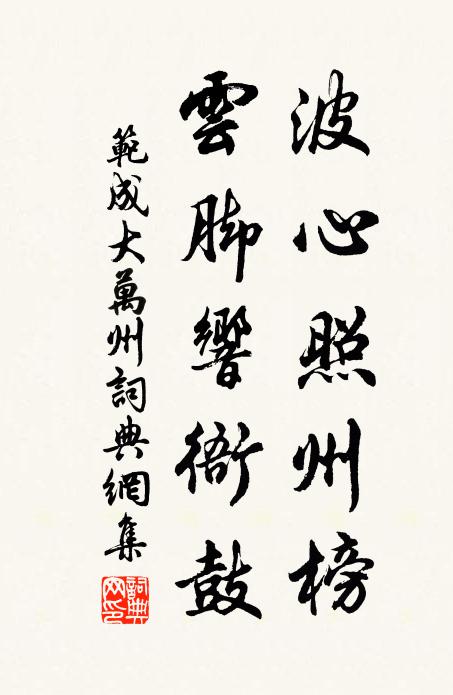 波心照州榜
雲脚響衙鼓
範成大萬州詞典網集
詞典網印